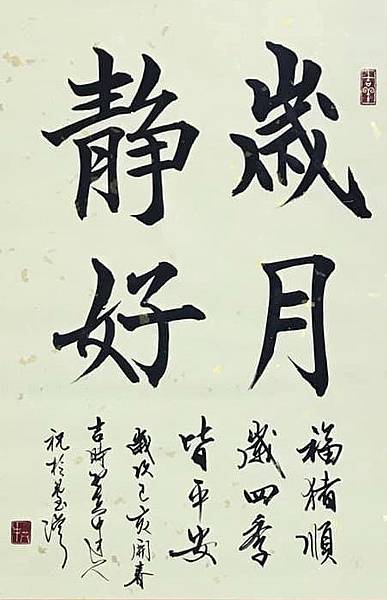 歲月
静好
福猪順
歲四季
皆平安
歲次己亥開春
吉時
祝於